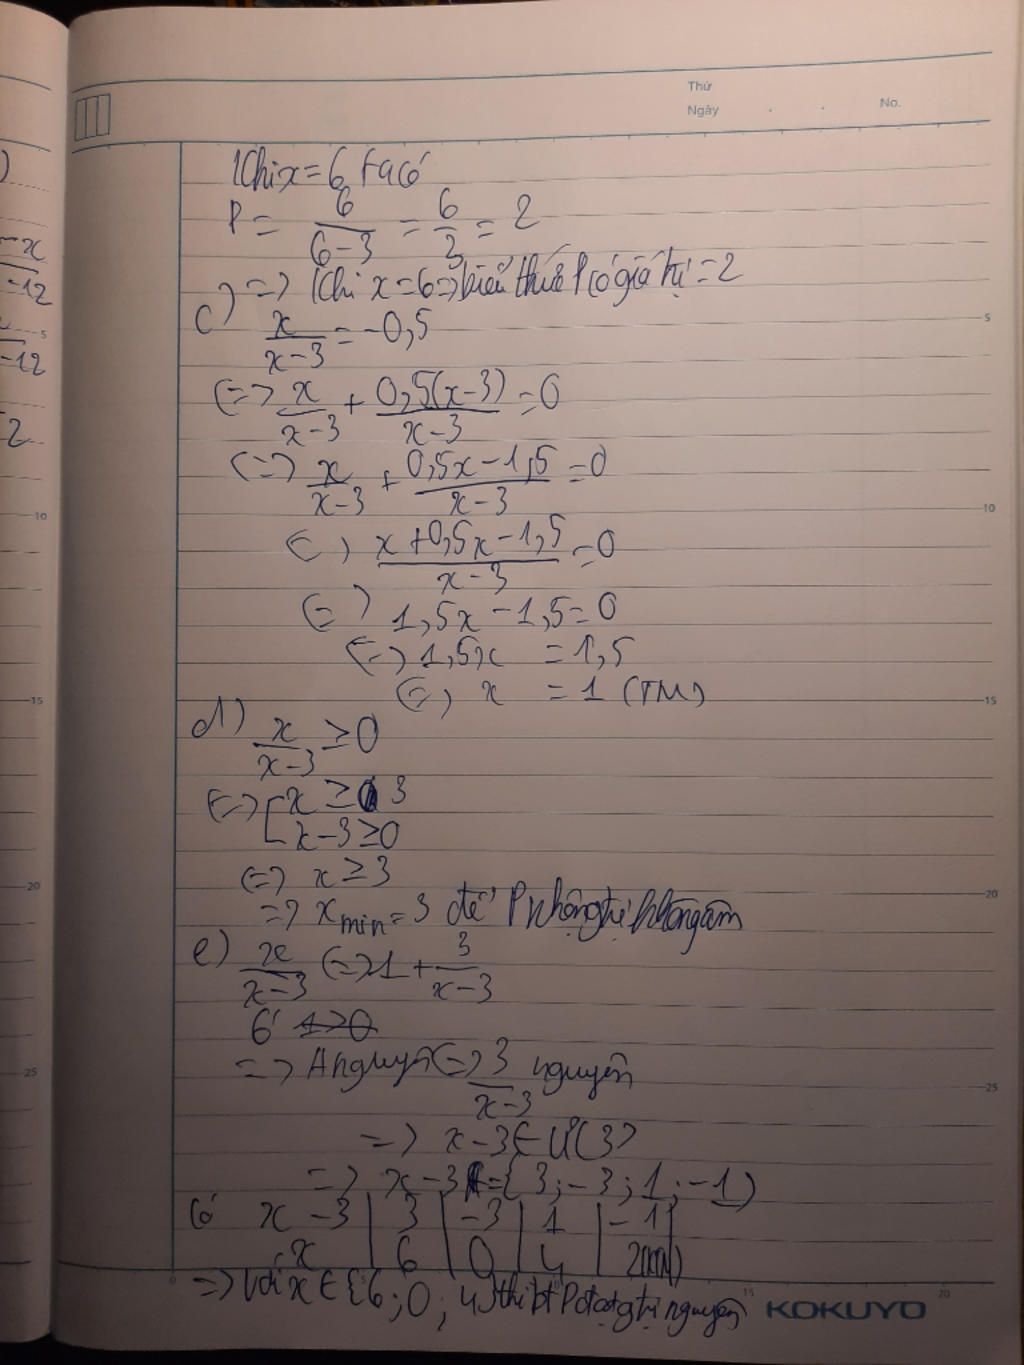 Thứ
Ngày . . No.
Khi x = 6 ta có
P = 6/(6-3) = 6/3 = 2
=> Khi x = 6 => biểu thức P có giá trị = 2
c) x/(x-3) = -0,5
<=> x/(x-3) + 0,5(x-3)/(x-3) = 0
<=> x/(x-3) + (0,5x-1,5)/(x-3) = 0
<=> (x+0,5x-1,5)/(x-3) = 0
<=> 1,5x - 1,5 = 0
<=> 1,5x = 1,5
<=> x = 1 (TM)
d) x/(x-3) ≥ 0
<=> [ x ≥ 3
x-3 ≥ 0
<=> x ≥ 3
=> x min = 3 để P
e) x/(x-3) <=> 1 + 3/(x-3)
Có 1>0
=> A nguyên <=> 3/(x-3) nguyên
=> x-3 ∈ Ư(3)
=> x-3 = {3; -3; 1; -1}
Có x-3 | 3 | -3 | 1 | -1
x | 6 | 0 | 4 | 2
=> Với x ∈ {6; 0; 4} thì bt P đạt giá trị nguyên
KOKUYO
-12
-12
2
5
10
15
20
25
5
10
15
20
25
0
5
15
20